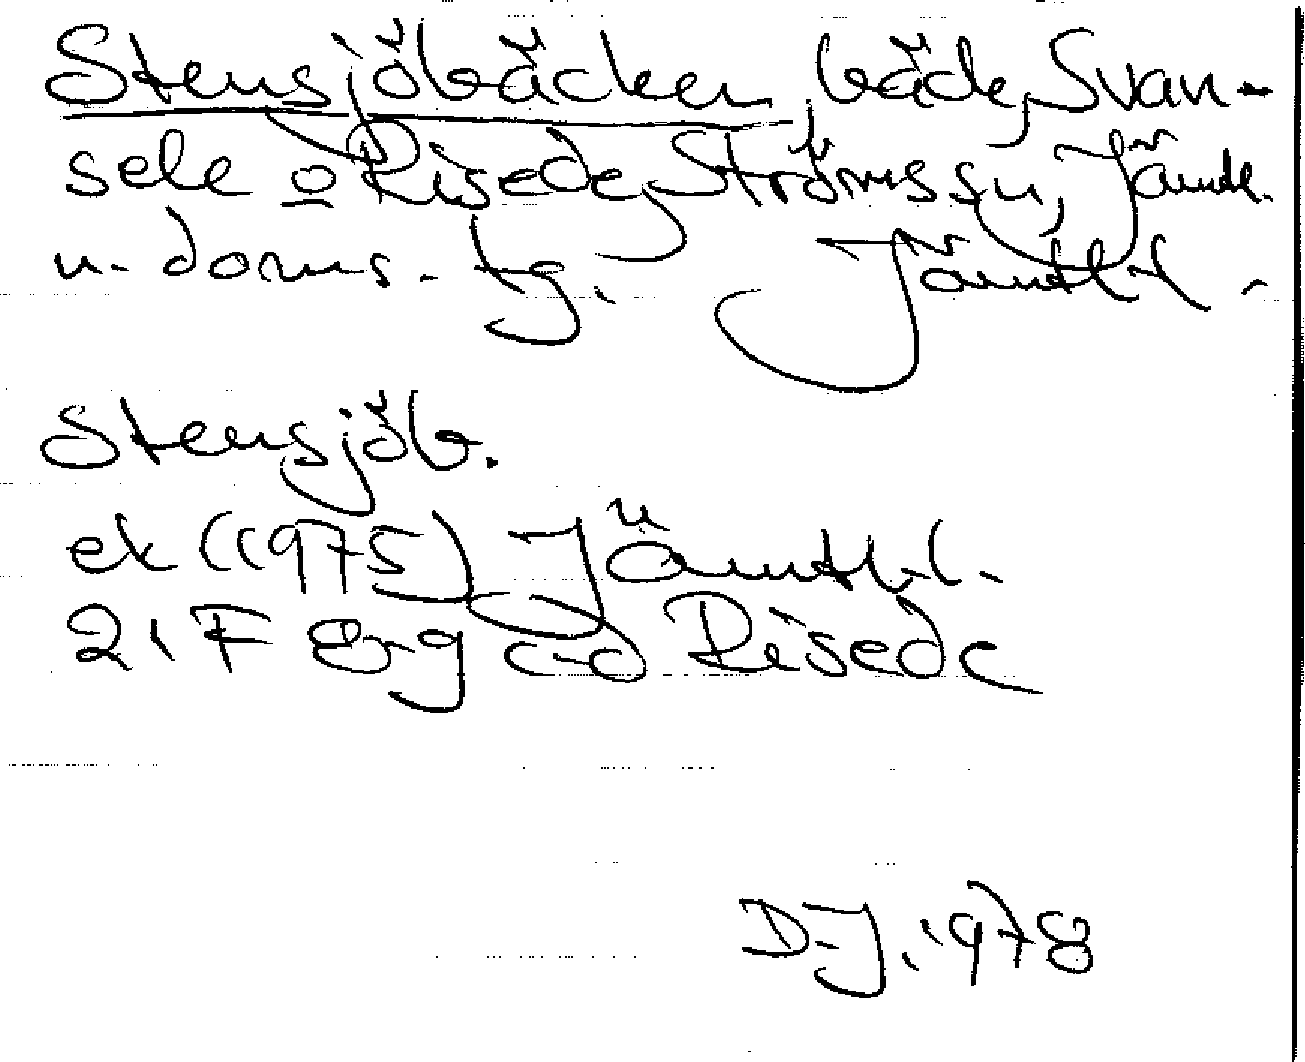 Stensjöbäcken, bäck, Svan-
sele o Risede, Ströms sn, Jämtl.
n. doms. tg. Jämtl. l.
Stensjöb.
ek (1975) Jämtl. l.
21F 8-g c-d Risede
D-J. 1978